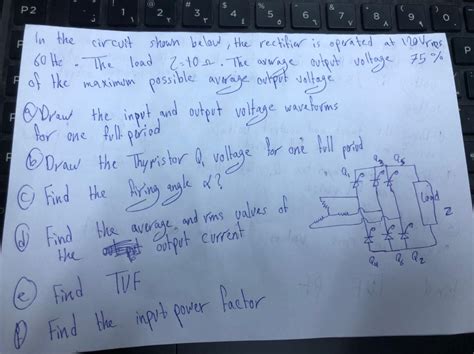 In the circuit shown below, the rectifier is operated at 120Vrms
60Hz. The load Z=10Ω. The average output voltage 75%
of the maximum possible average output voltage
ⓐ Draw the input and output voltage waveforms
for one full period
ⓑ Draw the Thyristor Q1 voltage for one full period
ⓒ Find the firing angle α?
ⓓ Find the average and rms values of
the output current
ⓔ Find TUF
ⓕ Find the input power factor
Q1 Q3 Q5
Load
Z
Q4 Q6 Q2
P2